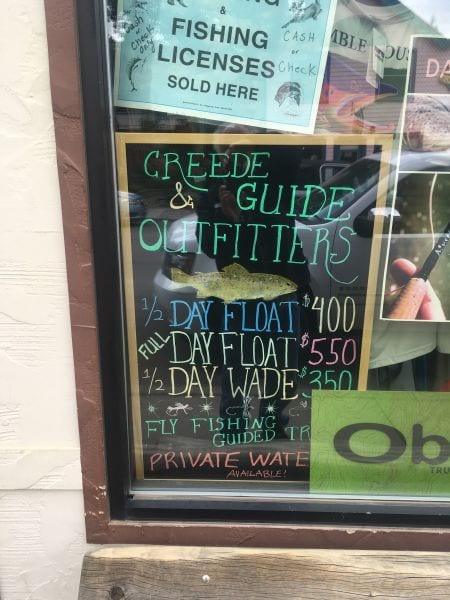 &
FISHING
LICENSES
SOLD HERE
Cash
or
Check
only
CASH
or
Check
CREEDE
& GUIDE
OUTFITTERS
1/2 DAY FLOAT $400
FULL DAY FLOAT $550
1/2 DAY WADE $350
FLY FISHING
GUIDED TR
PRIVATE WATE
AVAILABLE!
Ob
TRU
DA